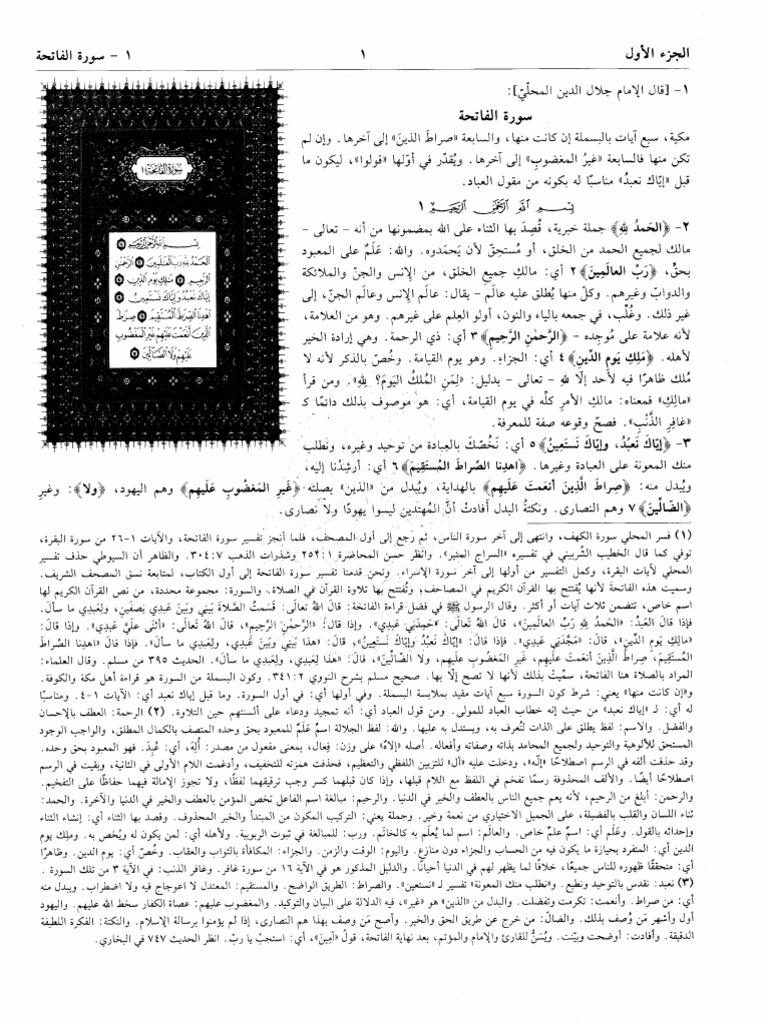 الجزء الأول
١
١ - سورة الفاتحة
١- [قال الإمام جلال الدين المحلّيّ]:
سورة الفاتحة
مكية، سبع آيات بالبسملة إن كانت منها، والسابعة «صراطَ الذينَ» إلى آخرها. وإن لم
تكن منها فالسابعة «غيرُ المغضوبِ» إلى آخرها. ويُقدّر في أوّلها «قولوا»، ليكون ما
قبل «إيّاك نعبدُ» مناسبًا له بكونه من مقول العباد.
بسم الله الرحمن الرحيم ١
٢- ﴿الحَمدُ لِلّهِ﴾ جملة خبرية، قُصِدَ بها الثناء على الله بمضمونها من أنه - تعالى -
مالك لجميع الحمد من الخلق، أو مُستحِقّ لأن يَحمَدوه. والله: عَلَمٌ على المعبود
بحقّ، ﴿رَبِّ العالَمِينَ﴾ ٢ أي: مالكِ جميعِ الخلق، من الإنس والجنّ والملائكة
والدوابّ وغيرهم. وكلّ منها يُطلق عليه عالَم - يقال: عالَم الإنس وعالَم الجنّ، إلى
غير ذلك. وغُلِّب، في جمعه بالياء والنون، أولو العِلم على غيرهم. وهو من العلامة،
لأنه علامة على مُوجِده - ﴿الرَّحمٰنِ الرَّحِيمِ﴾ ٣ أي: ذي الرحمة. وهي إرادة الخير
لأهله. ﴿مَلِكِ يَومِ الدِّينِ﴾ ٤ أي: الجزاءِ. وهو يوم القيامة. وخُصّ بالذكر لأنه لا
مُلك ظاهرًا فيه لأحد إلّا لله - تعالى - بدليل: «لِمَنِ المُلكُ اليَومَ؟ لِلّهِ». ومن قرأ
«مالِكِ» فمعناه: مالكِ الأمرِ كلِّه في يوم القيامة، أي: هو موصوف بذلك دائمًا كـ
«غافِرِ الذَّنْبِ». فصحّ وقوعه صفة للمعرفة.
٣- ﴿إيّاكَ نَعبُدُ، وإيّاكَ نَستَعِينُ﴾ ٥ أي: نَخُصّكَ بالعبادة من توحيد وغيره، ونَطلب
منك المعونة على العبادة وغيرها. ﴿اهدِنا الصِّراطَ المُستَقِيمَ﴾ ٦ أي: أرشِدْنا إليه،
ويُبدل منه: ﴿صِراطَ الَّذِينَ أنعَمتَ عَلَيهِم﴾ بالهداية، ويُبدل من «الذين» بصلته ﴿غَيرِ المَغضُوبِ عَلَيهِم﴾ وهم اليهود، ﴿ولا﴾: وغيرِ
﴿الضّالِّينَ﴾ ٧ وهم النصارى. ونكتةُ البدل أفادتْ أنّ المُهتدِين ليسوا يهودًا ولا نصارى.
(١) فسر المحلي سورة الكهف، وانتهى إلى آخر سورة الناس، ثم رَجع إلى أول المصحف، فلما أنجز تفسير سورة الفاتحة، والآيات ١-٢٦ من سورة البقرة،
توفي كما قال الخطيب الشربيني في تفسيره «السراج المنير». وانظر حسن المحاضرة ٢٥٢:١ وشذرات الذهب ٣٠٤:٧. والظاهر أن السيوطي حذف تفسير
المحلي لآيات البقرة، وكمل التفسير من أولها إلى آخر سورة الإسراء. ونحن قدمنا تفسير سورة الفاتحة إلى أول الكتاب، لمتابعة نسق المصحف الشريف.
وسميت هذه الفاتحة لأنها يُفتتح بها القرآن الكريم في المصاحف، وتُفتتح بها تلاوة القرآن في الصلاة. والسورة: مجموعة محددة، من نص القرآن الكريم لها
اسم خاص، تتضمن ثلاث آيات أو أكثر. وقال الرسول ﷺ في فضل قراءة الفاتحة: قالَ اللهُ تعالَى: قَسَمتُ الصَّلاةَ بَينِي وبَينَ عَبدِي نِصفَينِ، ولِعَبدِي ما سألَ.
فإذا قالَ العَبدُ: «الحَمدُ لِلّهِ رَبِّ العالَمِينَ»، قالَ اللهُ تعالَى: «حَمِدَنِي عَبدِي». وإذا قالَ: «الرَّحمٰنِ الرَّحِيمِ»، قالَ اللهُ تَعالَى: «أثنَى عَلَيَّ عَبدِي». وإذا قالَ:
«مالِكِ يَومِ الدِّينِ»، قالَ: «مَجَّدَنِي عَبدِي». فإذا قالَ: «إيّاكَ نَعبُدُ وإيّاكَ نَستَعِينُ»، قالَ: «هذا بَينِي وبَينَ عَبدِي، ولِعَبدِي ما سألَ». فإذا قالَ «اهدِنا الصِّراطَ
المُستَقِيمَ، صِراطَ الَّذِينَ أنعَمتَ عَلَيهِم، غَيرِ المَغضُوبِ عَلَيهِم، ولا الضّالِّينَ»، قالَ: «هَذا لِعَبدِي، ولِعَبدِي ما سألَ». الحديث ٣٩٥ من مسلم. وقال العلماء:
المراد بالصلاة هنا الفاتحة، سمّيتْ بذلك لأنها لا تصح إلّا بها. صحيح مسلم بشرح النووي ٣٤١:٢. وكون البسملة من السورة هو قراءة أهل مكة والكوفة.
و«إن كانت منها» يعني: شرط كون السورة سبع آيات مقيد بملابسة البسملة. وفي أولها أي: في أول السورة. وما قبل إياك نعبد أي: الآيات ١-٤. ومناسبًا
له أي: لـ «إياك نعبد» من حيث إنه خطاب العباد للمولى. ومن قول العباد أي: أنه تمجيد ودعاء على ألسنتهم حين التلاوة. (٢) الرحمة: العطف بالإحسان
والفضل. والاسم: لفظ يطلق على الذات لتُعرف به، ويستدل به عليها. والله: لفظ الجلالة اسم عَلَم للمعبود بحق وحده المتصف بالكمال المطلق، والواجب الوجود
المستحق للألوهية والتوحيد ولجميع المحامد بذاته وصفاته وأفعاله. أصله «إلاهٌ» على وزن: فِعال، بمعنى مفعول من مصدر: أَلِهَ، أي: عُبِدَ. فهو المعبود بحق وحده.
وقد حذفت ألفه في الرسم اصطلاحًا «إلٰه»، ودخلت عليه «أل» للتزيين اللفظي والتعظيم، فحذفت همزته للتخفيف، وأدغمت اللام الأولى في الثانية، وبقيت في الرسم
اصطلاحًا أيضًا. والألف المحذوفة رسمًا تفخم في اللفظ مع اللام قبلها، وإذا كان قبلهما كسر وجب ترقيقهما لفظًا، ولا تجوز الإمالة فيهما حفاظًا على التفخيم.
والرحمن: أبلغ من الرحيم، لأنه يعم جميع الناس بالعطف والخير في الدنيا. والرحيم: مبالغة اسم الفاعل تخص المؤمن بالعطف والخير في الدنيا والآخرة. والحمد:
ثناء اللسان والقلب بالفضيلة، على الجميل الاختياري من نعمة وخير. وجملة يعني: التركيب المكون من المبتدأ والخبر المحذوف. وقصد بها الثناء أي: إنشاء الثناء
وإحداثه بالقول. وعَلَم أي: اسمُ علَمٍ خاص. والعالَم: اسم لما يُعلَم به كالخاتَم. ورب: للمبالغة في ثبوت الربوبية. ولأهله أي: لمن يكون له ويُخص به. وملك يوم
الدين أي: المتفرد بحيازة ما يكون فيه من الحساب والجزاء دون منازع. واليوم: الوقت والزمن. والجزاء: المكافأة بالثواب والعقاب. وخُصّ أي: يوم الدين. وظاهرًا
أي: متحققًا ظهوره للناس جميعًا، خلافًا لما يظهر لهم في الدنيا أحيانًا. والدليل المذكور هو في الآية ١٦ من سورة غافر. وغافر الذنب: في الآية ٣ من تلك السورة.
(٣) نعبد: نقدس بالتوحيد ونطيع. و«نطلب منك المعونة» تفسير لـ «نستعين». والصراط: الطريق الواضح. والمستقيم: المعتدل لا اعوجاج فيه ولا اضطراب. ويبدل منه
أي: من صراط. وأنعمت: تكرمت وتفضلت. والبدل من «الذين» هو «غير»، فيه الدلالة على البيان والتوكيد. والمغضوب عليهم: عصاة الكفار سخط الله عليهم. واليهود
أول وأشهر مَن وُصف بذلك. والضالّ: من خرج عن طريق الحق والخير. وأصح مَن وصف بهذا هم النصارى، إذا لم يؤمنوا برسالة الإسلام. والنكتة: الفكرة اللطيفة
الدقيقة. وأفادت: أوضحت وبيّنت. ويُسَنُّ للقارئ والإمام والمؤتم، بعد نهاية الفاتحة، قولُ «آمِينَ»، أي: استجبْ يا ربّ. انظر الحديث ٧٤٧ في البخاري.
سورة الفاتحة ١
بسم الله الرحمن الرحيم ١
الحمد لله رب العلمين ٢ الرحمن
الرحيم ٣ ملك يوم الدين ٤
إياك نعبد وإياك نستعين ٥
اهدنا الصرط المستقيم ٦ صرط
الذين أنعمت عليهم غير المغضوب
عليهم ولا الضالين ٧